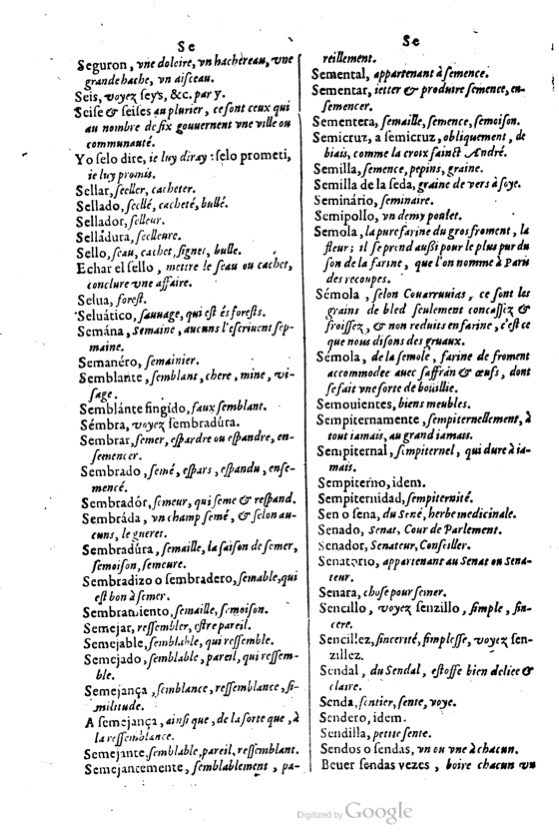 Se
Seguron, vne doleire, vn hachereau, vne
grande hache, vn aisceau.
Seis, voyez seys, &c. par y.
Seise & seises au plurier, ce sont ceux qui
au nombre de six gouuernent vne ville ou
communauté.
Yo selo dire, ie luy diray: selo prometi,
ie luy promis.
Sellar, seeller, cacheter.
Sellado, seellé, cacheté, bullé.
Sellador, selleur.
Selládura, seelleure.
Sello, seau, cachet, signet, bulle.
Echar el sello, mettre le seau ou cachet,
conclure vne affaire.
Selua, forest.
Seluático, sauuage, qui est és forests.
Semána, semaine, aucuns l'escriuent sep-
maine.
Semanéro, semainier.
Semblante, semblant, chere, mine, vi-
sage.
Semblánte fingido, faux semblant.
Sémbra, voyez sembradúra.
Sembrar, semer, espardre ou espandre, en-
semencer.
Sembrado, semé, espars, espandu, ense-
mencé.
Sembradór, semeur, qui seme & respand.
Sembráda, vn champ semé, & selon au-
cuns, le gueret.
Sembradúra, semaille, la saison de semer,
semoison, semeure.
Sembradizo o sembradero, semable, qui
est bon à semer.
Sembramiento, semaille, semoison.
Semejar, ressembler, estre pareil.
Semejable, semblable, qui ressemble.
Semejado, semblable, pareil, qui ressem-
ble.
Semejança, semblance, ressemblance, si-
militude.
A semejança, ainsi que, de la sorte que, à
la ressemblance.
Semejante, semblable, pareil, ressemblant.
Semejancemente, semblablement, pa-
Se
reillement.
Semental, appartenant à semence.
Sementar, ietter & produire semence, en-
semencer.
Sementera, semaille, semence, semoison.
Semicruz, a semicruz, obliquement, de
biais, comme la croix sainct André.
Semilla, semence, pepins, graine.
Semilla de la seda, graine de vers à soye.
Seminário, seminaire.
Semipollo, vn demy poulet.
Semola, la pure farine du gros froment, la
fleur; il se prend aussi pour le plus pur du
son de la farine, que l'on nomme à Paris
des recoupes.
Sémola, selon Couarruuias, ce sont les
grains de bled seulement concassez &
froissez, & non reduits en farine, c'est ce
que nous disons des gruaux.
Sémola, de la semole, farine de froment
accommodee auec saffran & œufs, dont
se fait vne sorte de bouillie.
Semouientes, biens meubles.
Sempiternamente, sempiternellement, à
tout iamais, au grand iamais.
Sempiternal, sempiternel, qui dure à ia-
mais.
Sempiterno, idem.
Sempiternidad, sempiternité.
Sen o sena, du Sené, herbe medicinale.
Senado, Senat, Cour de Parlement.
Senador, Senateur, Conseiller.
Senatorio, appartenant au Senat ou Sena-
teur.
Senara, chose pour semer.
Sencillo, voyez senzillo, simple, sin-
cere.
Sencillez, sincerité, simplesse, voyez sen-
zillez.
Sendal, du Sendal, estosse bien deliee &
claire.
Senda, sentier, sente, voye.
Sendero, idem.
Sendilla, petite sente.
Sendos o sendas, vn ou vne à chacun.
Beuer sendas vezes, boire chacun vn
Digitized by Google